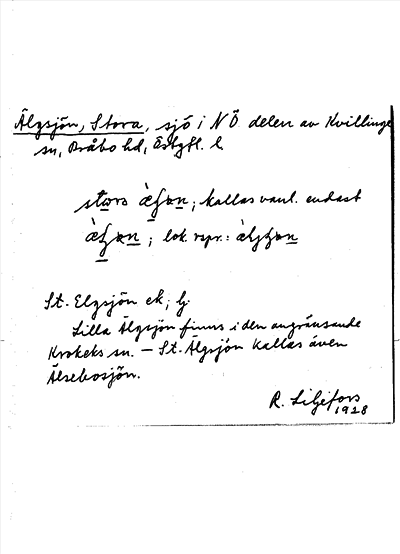 Älgsjön, Stora, sjö i NÖ delen av Kvillinge
sn, Bråbo hd, Östgtl. l.
kallas vanl. endast
; lok. repr.:
St. Elgsjön ek; lj.
Lilla Älgsjön finns i den angränsande
Krokeks sn. — St. Älgsjön kallas även
Älsebosjön.
R. Liljefors
1928